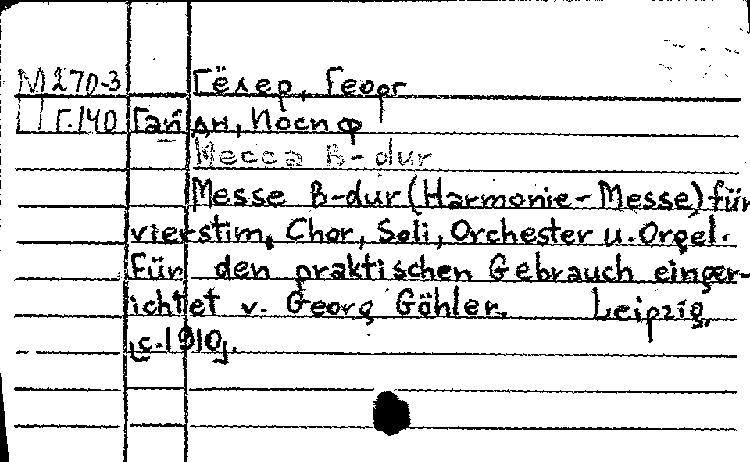 М 270-3 Гёлер, Георг
Г.140 Гайдн, Иосиф
Месса B-dur
Messe B-dur (Harmonie-Messe) für
vierstim. Chor, Soli, Orchester u. Orgel.
Für den praktischen Gebrauch einger-
ichtet v. Georg Göhler. Leipzig,
[c.1910].